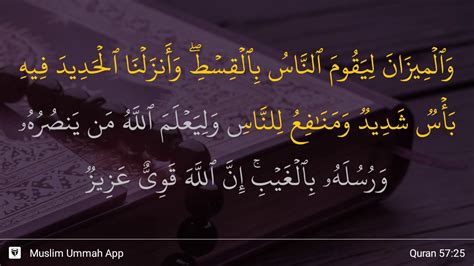 وَٱلْمِيزَانَ لِيَقُومَ ٱلنَّاسُ بِٱلْقِسْطِ ۖ وَأَنزَلْنَا ٱلْحَدِيدَ فِيهِ
بَأْسٌ شَدِيدٌ وَمَنَـٰفِعُ لِلنَّاسِ وَلِيَعْلَمَ ٱللَّهُ مَن يَنصُرُهُۥ
وَرُسُلَهُۥ بِٱلْغَيْبِ ۚ إِنَّ ٱللَّهَ قَوِىٌّ عَزِيزٌ
Muslim Ummah App
Quran 57:25